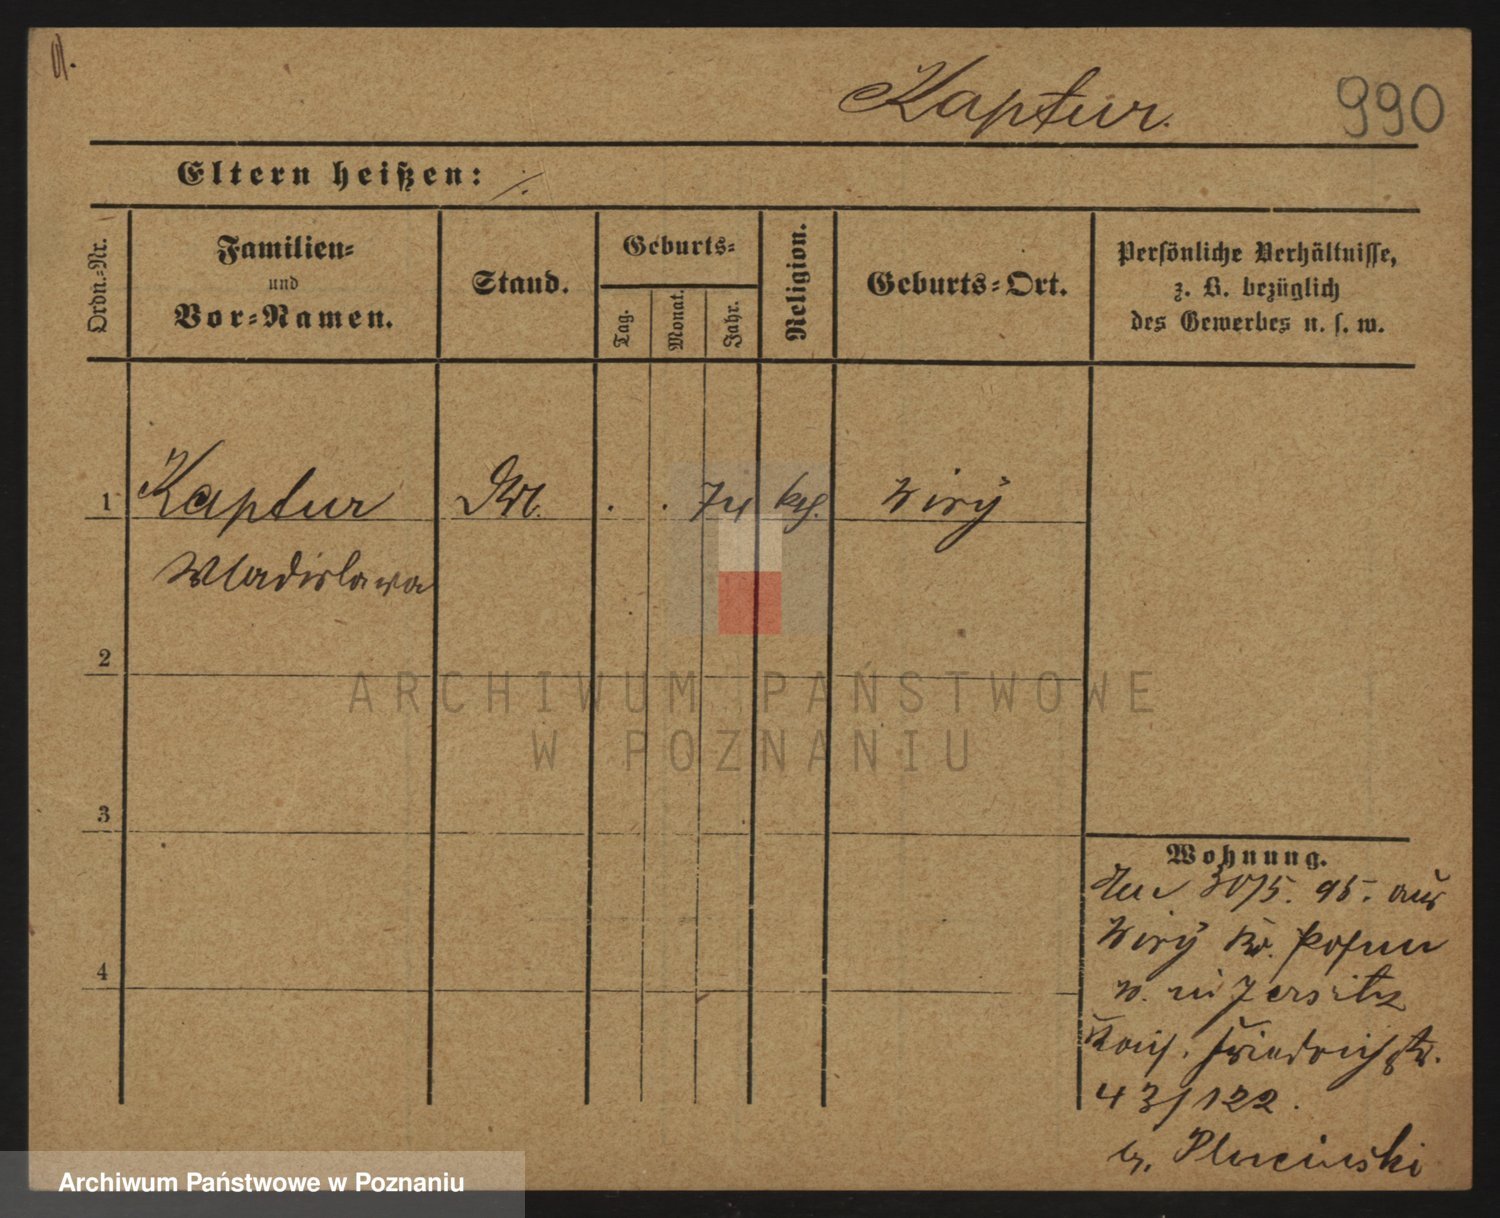 Kaptur.
990
Eltern heißen: ./.
Ordn.-Nr.
Familien-
und
Vor-Namen.
Stand.
Geburts-
Tag.
Monat.
Jahr.
Religion.
Geburts-Ort.
Persönliche Verhältnisse,
z. B. bezüglich
des Gewerbes u. s. w.
1 Kaptur . . 74 kth. Wiry
Wladislawa
2
3
4
ARCHIWUM PAŃSTWOWE
W POZNANIU
Wohnung.
30/5. 95. aus
Wiry Kr. Posen
n. in Jersitz
Kais. Friedrichstr.
43/122.
b. Plucinski
Archiwum Państwowe w Poznaniu